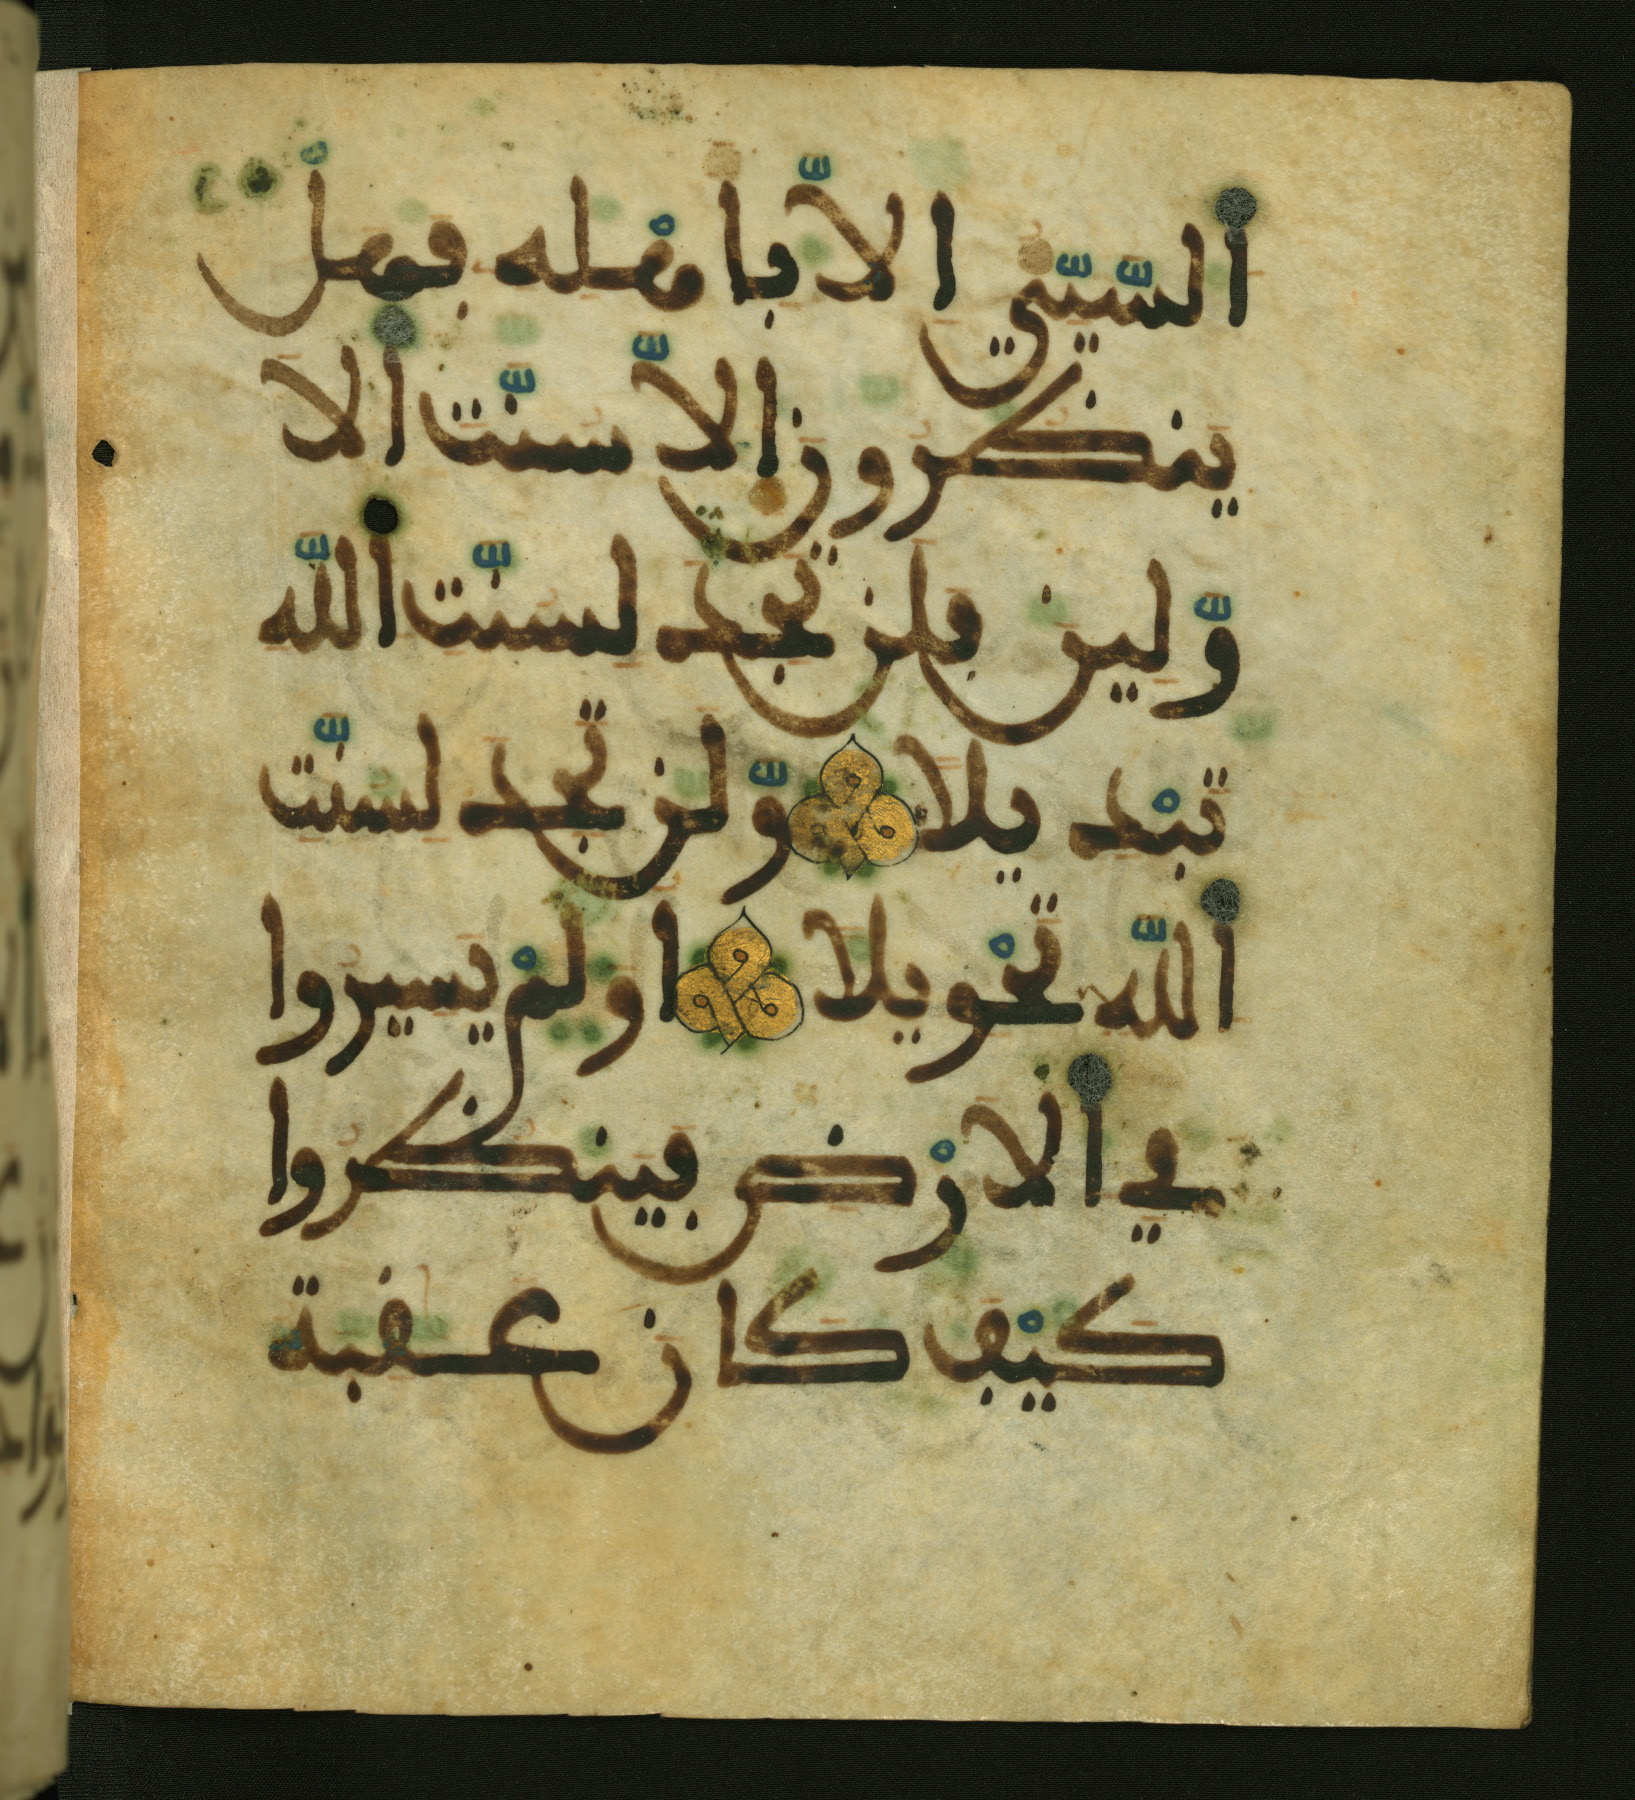 السيئ الا باهله فهل
ينظرون الا سنت الا
ولين فلن تجد لسنت الله
تبديلا ولن تجد لسنت
الله تحويلا اولم يسيروا
في الارض فينظروا
كيف كان عقبة